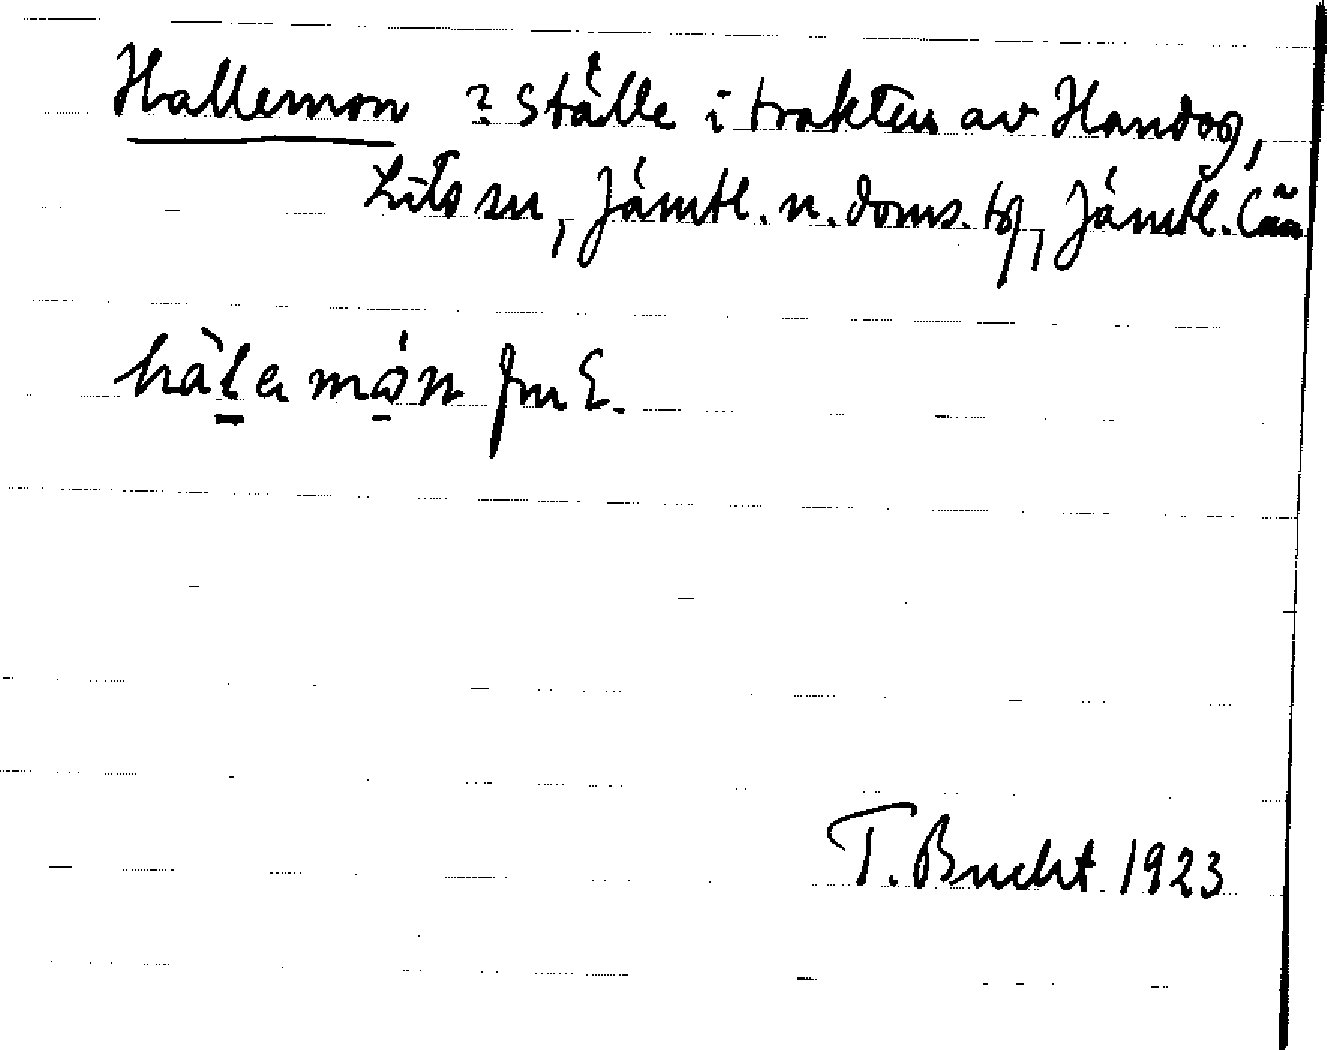 Hallemon ? Ställe i trakten av Handog,
Lits sn, Jämtl. n. doms. tg, Jämtl. län
hàl̠a mǫ́n fm E.
T. Bucht 1923